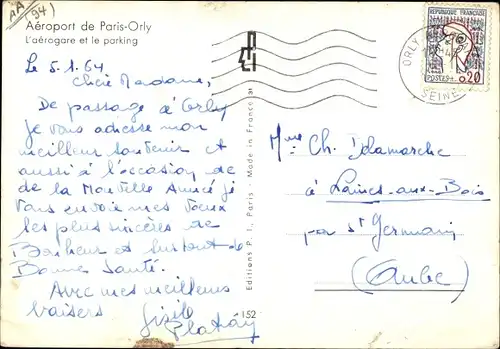 AA
94)
Aéroport de Paris-Orly
L'aérogare et le parking
Le 5.1.64
Chère Madame,
De passage à Orly
je vous adresse mon
meilleur souvenir et
aussi à l'occasion de
de la Nouvelle Année je
vous envoie mes vœux
les plus sincères de
Bonheur et surtout de
Bonne Santé.
Avec mes meilleurs
baisers
Gisèle
Editions P. I., Paris - Made in France
152
ORLY
SEINE
REPUBLIQUE FRANÇAISE
POSTES 0.20
Mme Ch. Delamarche
à Laines-aux-Bois
par St Germain
(Aube)